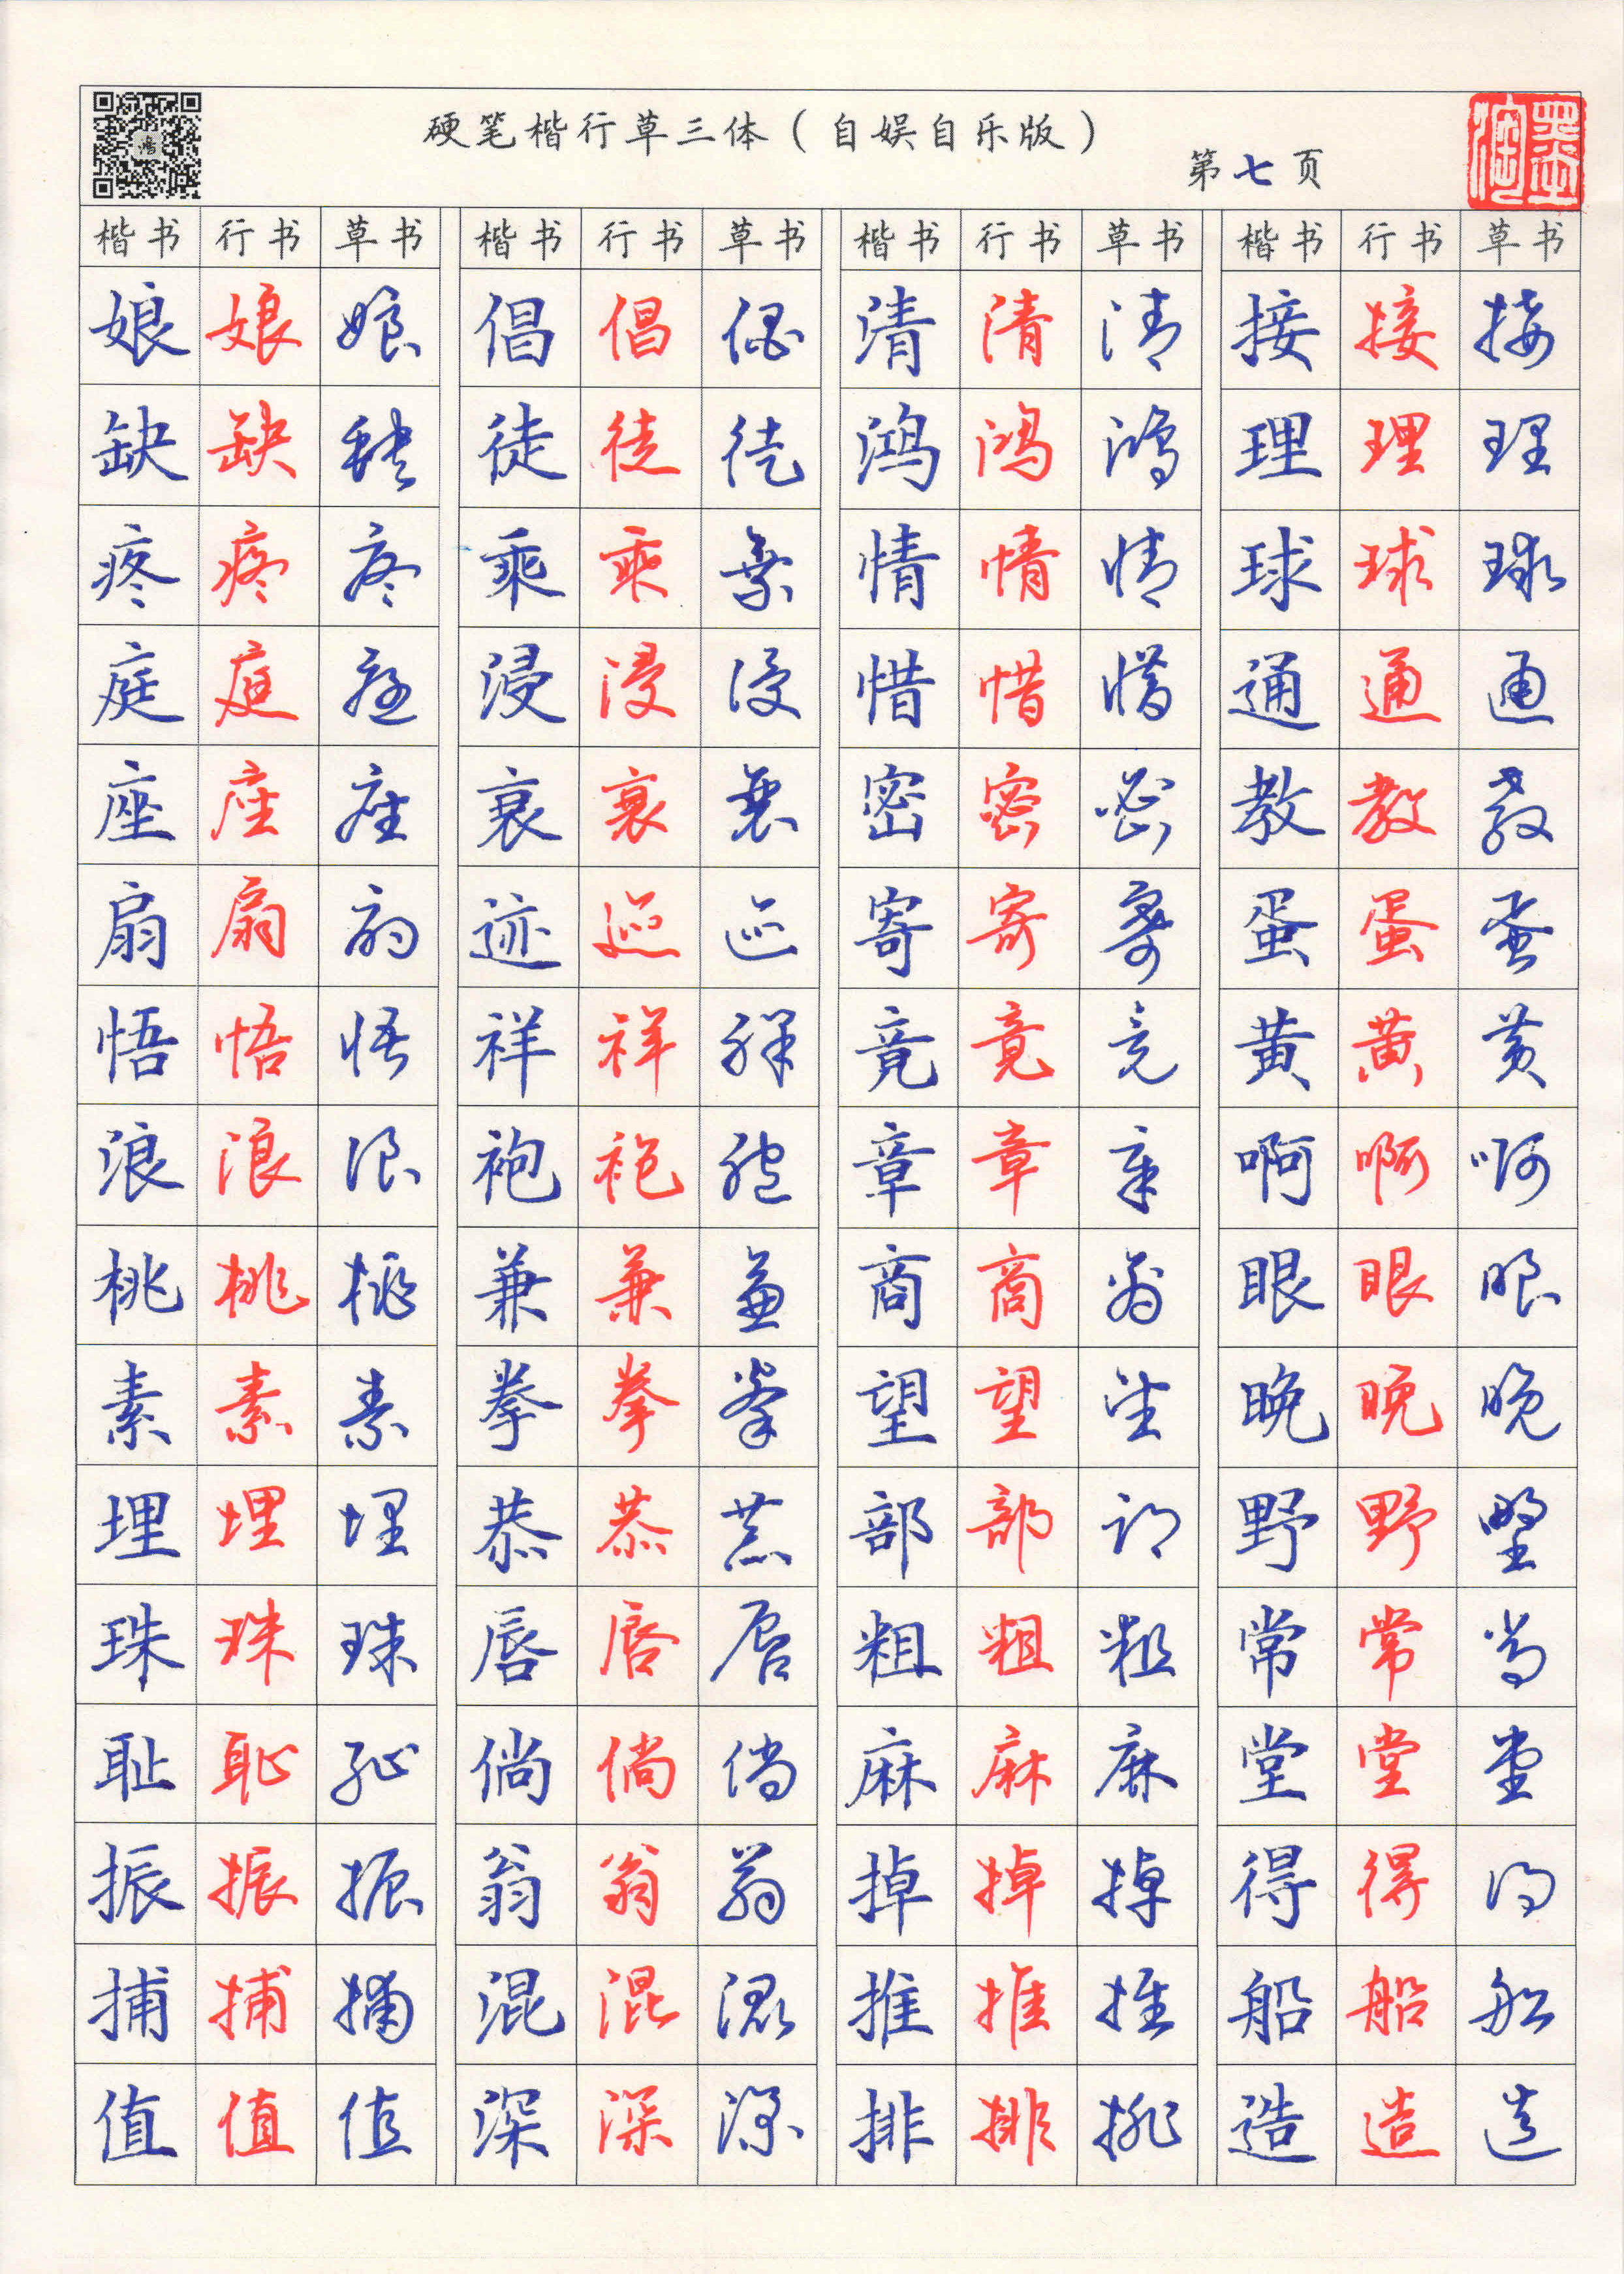 硬笔楷行草三体(自娱自乐版)
第七页
楷书 行书 草书 楷书 行书 草书 楷书 行书 草书 楷书 行书 草书
娘 娘 娘 倡 倡 倡 清 清 清 接 接 接
缺 缺 缺 徒 徒 徒 鸿 鸿 鸿 理 理 理
疼 疼 疼 乘 乘 乘 情 情 情 球 球 球
庭 庭 庭 浸 浸 浸 惜 惜 惜 通 通 通
座 座 座 衰 衰 衰 密 密 密 教 教 教
扇 扇 扇 迹 迹 迹 寄 寄 寄 蛋 蛋 蛋
悟 悟 悟 祥 祥 祥 竟 竟 竟 黄 黄 黄
浪 浪 浪 袍 袍 袍 章 章 章 啊 啊 啊
桃 桃 桃 兼 兼 兼 商 商 商 眼 眼 眼
素 素 素 拳 拳 拳 望 望 望 晚 晚 晚
埋 埋 埋 恭 恭 恭 部 部 部 野 野 野
珠 珠 珠 唇 唇 唇 粗 粗 粗 常 常 常
耻 耻 耻 倘 倘 倘 麻 麻 麻 堂 堂 堂
振 振 振 翁 翁 翁 掉 掉 掉 得 得 得
捕 捕 捕 混 混 混 推 推 推 船 船 船
值 值 值 深 深 深 排 排 排 造 造 造